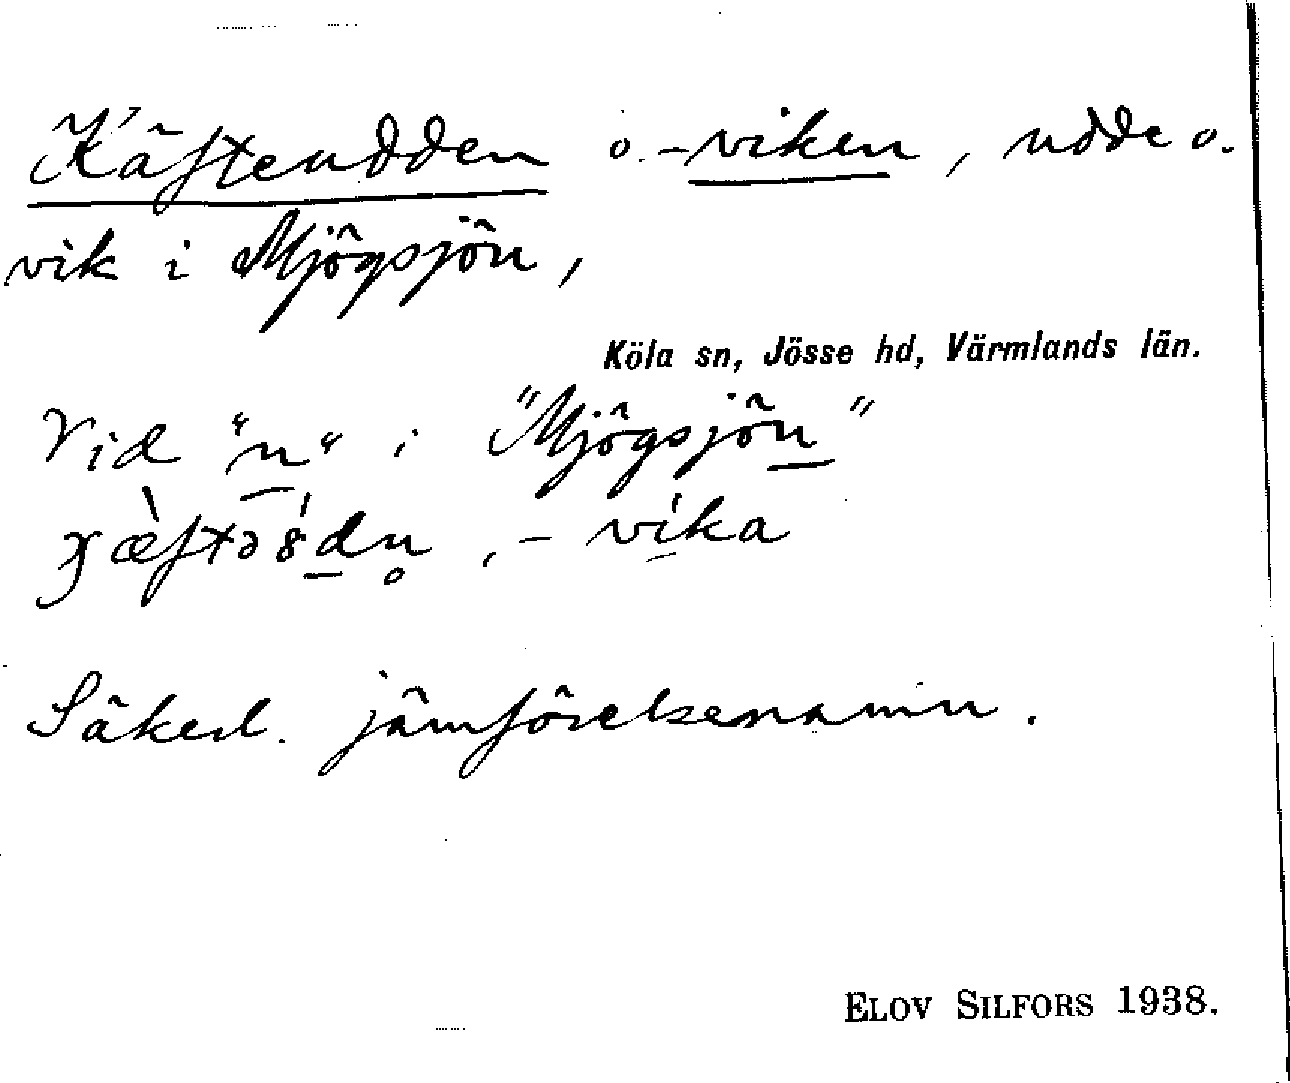 Käfteudden o. -viken, udde o.
vik i Mjögsjön,
Köla sn, Jösse hd, Värmlands län.
Vid "n" i "Mjögsjön"
-vika
Säkerl. jämförelsenamn.
ELOV SILFORS 1938.